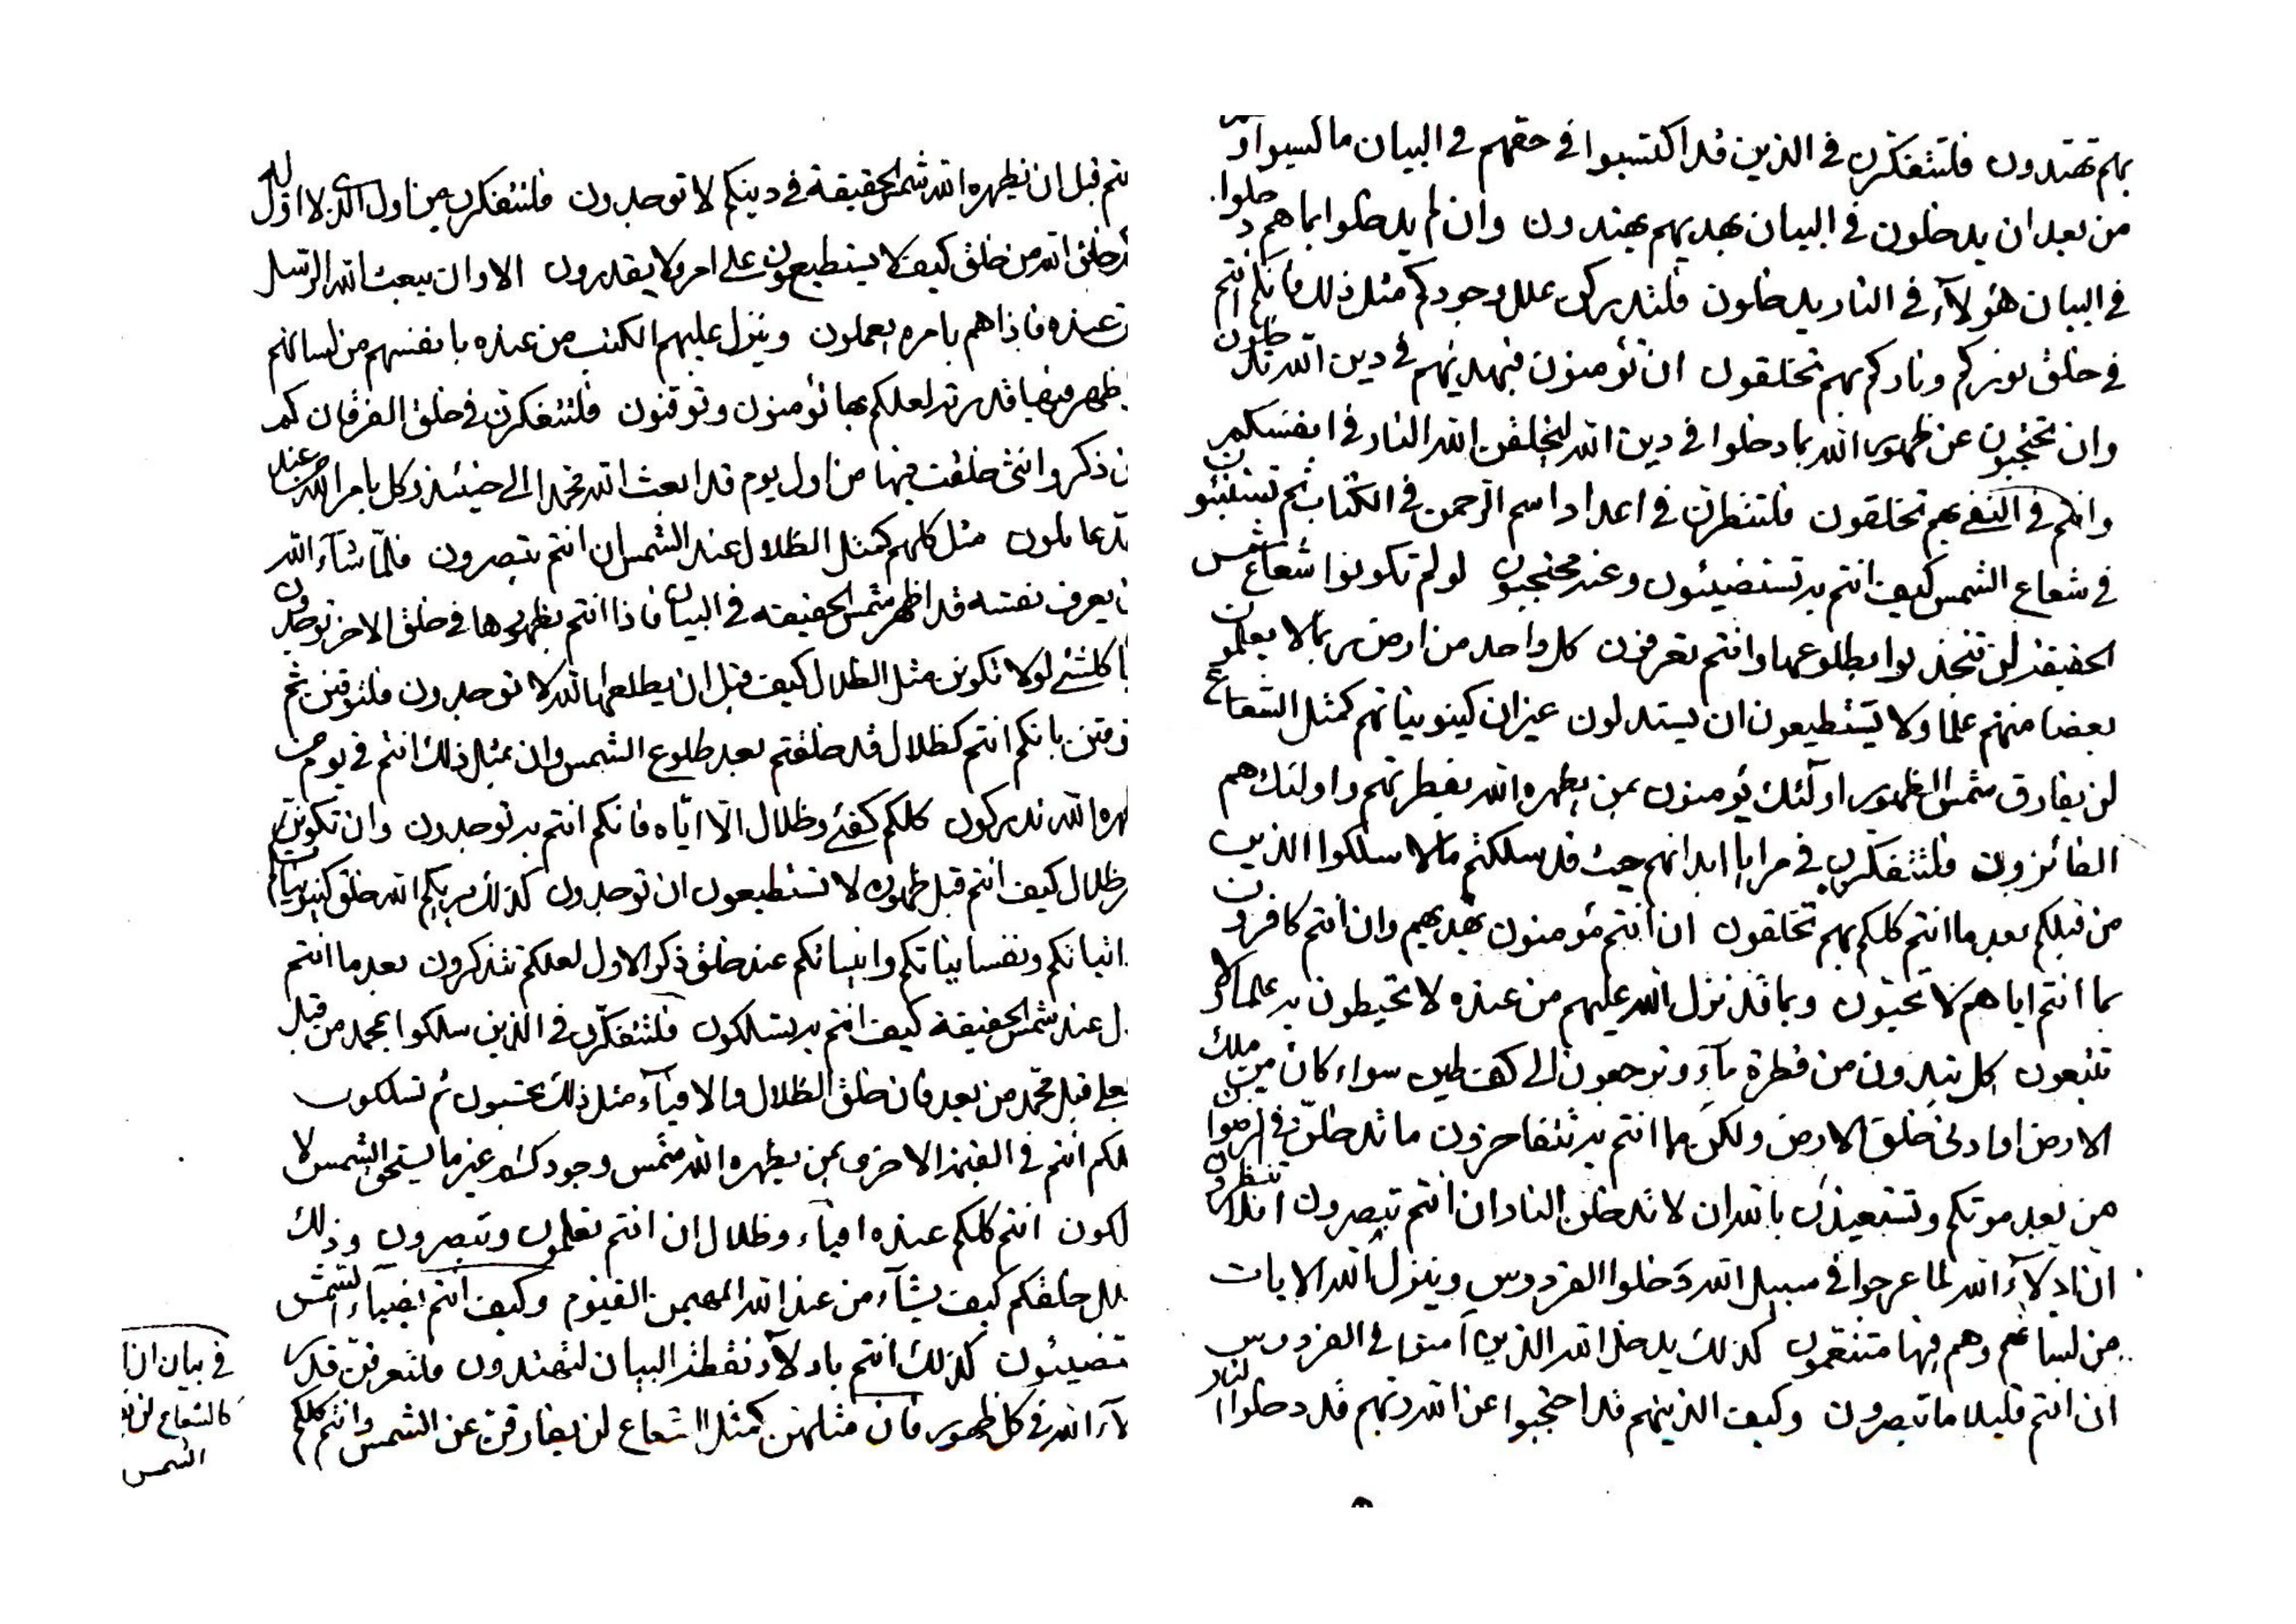 بهم تهتدون فلتتفكرن في الذين قد اكتسبوا في حقهم في البيان ما كسبوا
من بعد ان يدخلون في البيان بهديهم يهتدون وان لم يدخلوا بما هم دخلوا
في البيان هؤلآء في النار يدخلون فلتدركن علل وجودكم مثل ذلك فانكم انتم
في خلق نوركم وناركم بهم تخلقون ان تؤمنون فبهديهم في دين الله تدخلون
وان تحتجبون عن ظهور الله بما دخلوا في دين الله ليخلقن الله النار في انفسكم
وانكم في النفي بهم تخلقون فلتنظرن في اعداد اسم الرحمن في الكتاب ثم
في شعاع الشمس كيف انتم به تستضيئون وعنه محتجبون لو لم تكونوا شعاع شمس
الحقيقة لن تنجذبوا بطلوعها وانتم تعرفون كل واحد من ارض ربما لا يعلمون
بعضا منهم علما ولا يستطيعون ان يستدلون غير ان كينونياتهم كمثل الشعاع
لن يفارق شمس الظهور اولئك يؤمنون بمن يظهره الله بفطرتهم واولئك هم
الفائزون فلتتفكرن في مرايا ابدانهم حيث قد سلكتم ما لا سلكوا الذين
من قبلكم بعد ما انتم كلكم بهم تخلقون ان انتم مؤمنون بهديهم وان انتم كافرون
بما انتم اياهم لا تحبون وبما قد نزل الله عليهم من عنده لا تحيطون به علما
تتبعون كل تبدءون من قطرة مآء وترجعون الى كف طين سواء كان من ملك
الارض او ادنى خلق الارض ولكن ما انتم به تتفاخرون ما تدخلن في
من بعد موتكم وتستعيذن بالله ان لا تدخلن النار ان انتم تبصرون افلا تنظرون
ان ادلآء الله لما عرجوا في سبيل الله دخلوا الفردوس وينزل الله الايات
من لسانهم وهم فيها متنعمون كذلك يدخل الله الذين آمنوا في الفردوس
ان انتم قليلا ما تبصرون وكيف الذينهم قد احتجبوا عن الله ربهم قد دخلوا النار
قبل ان يظهره الله شمس الحقيقة في دينكم لا توحدون فلتتفكرن من اول الذي لا اول له
خلق الله من خلق كيف لا يستطيعون على امر ولا يقدرون الا وان يبعث الله الرسل
عنده فاذا هم بامره يعملون وينزل عليهم الكتب من عنده بانفسهم من لسانهم
ظهر فيها قدرته لعلكم بها تؤمنون وتوقنون فلتتفكرن في خلق الفرقان كم
ذكر وانثى خلقت فيها من اول يوم قد ابعث الله محمدا الى حينئذ وكل بامر الله من عند
عاملون مثل كلهم كمثل الظلال عند الشمس ان انتم تبصرون فلما شآء الله
يعرف نفسه قد اظهر شمس الحقيقة في البيان فاذا انتم بظهورها في خلق الاخر توحدون
كلشئ لولا تكونن مثل الظلال كيف قبل ان يطلعها الله لا توحدون فلتوقنن ثم
بانكم انتم كظلال قد خلقتم بعد طلوع الشمس وان بمثل ذلك انتم في يوم من
الله تدركون كلكم كفئ وظلال الا اياه فانكم انتم به توحدون وان تكونن
ظلال كيف انتم قبل ظهوره لا تستطيعون ان توحدون كذلك يريكم الله خلق كينونياتكم
ونفسانياتكم وانياتكم عند خلق ذكر الاول لعلكم تتذكرون بعد ما انتم
عند شمس الحقيقة كيف انتم به تسلكون فلتتفكرن في الذين سلكوا بمحمد من قبل
قبل محمد من بعد فان خلق الظلال والافيآء مثل ذلك تحسبون ثم تسلكون
انتم في القيمة الاخرى بمن يظهره الله شمس وجودكم غير ما يستحق الشمس لا
انتم كلكم عنده افيآء وظلال ان انتم تعلمون وتبصرون وذلك
خلقكم كيف يشآء من عند الله المهيمن القيوم وكيف انتم بضياء الشمس
كذلك انتم بادلآء نقطة البيان لتهتدون ولتعرفن قدر
الله في كل ظهور فان مثلهن كمثل الشعاع لن يفارقن عن الشمس وانتم كلكم
في بيان ان
كالشعاع لن
الشمس